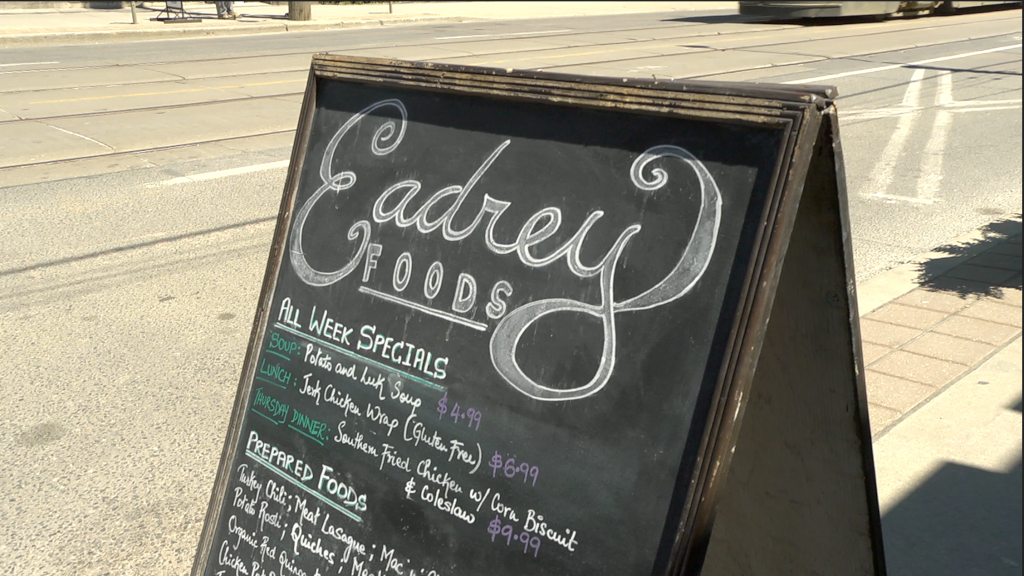 Eadrey
FOODS
ALL WEEK SPECIALS
SOUP: Potato and Luk Soup $4.99
LUNCH: Jerk Chicken Wrap (Gluten Free) $6.99
THURSDAY DINNER: Southern Fried Chicken w/ Corn Biscuit
& Coleslaw $9.99
PREPARED FOODS
Turkey Chili; Meat Lasagne; Mac
Potato Rosti; Quiches;
Organic Red Quinoa
Chicken Pot